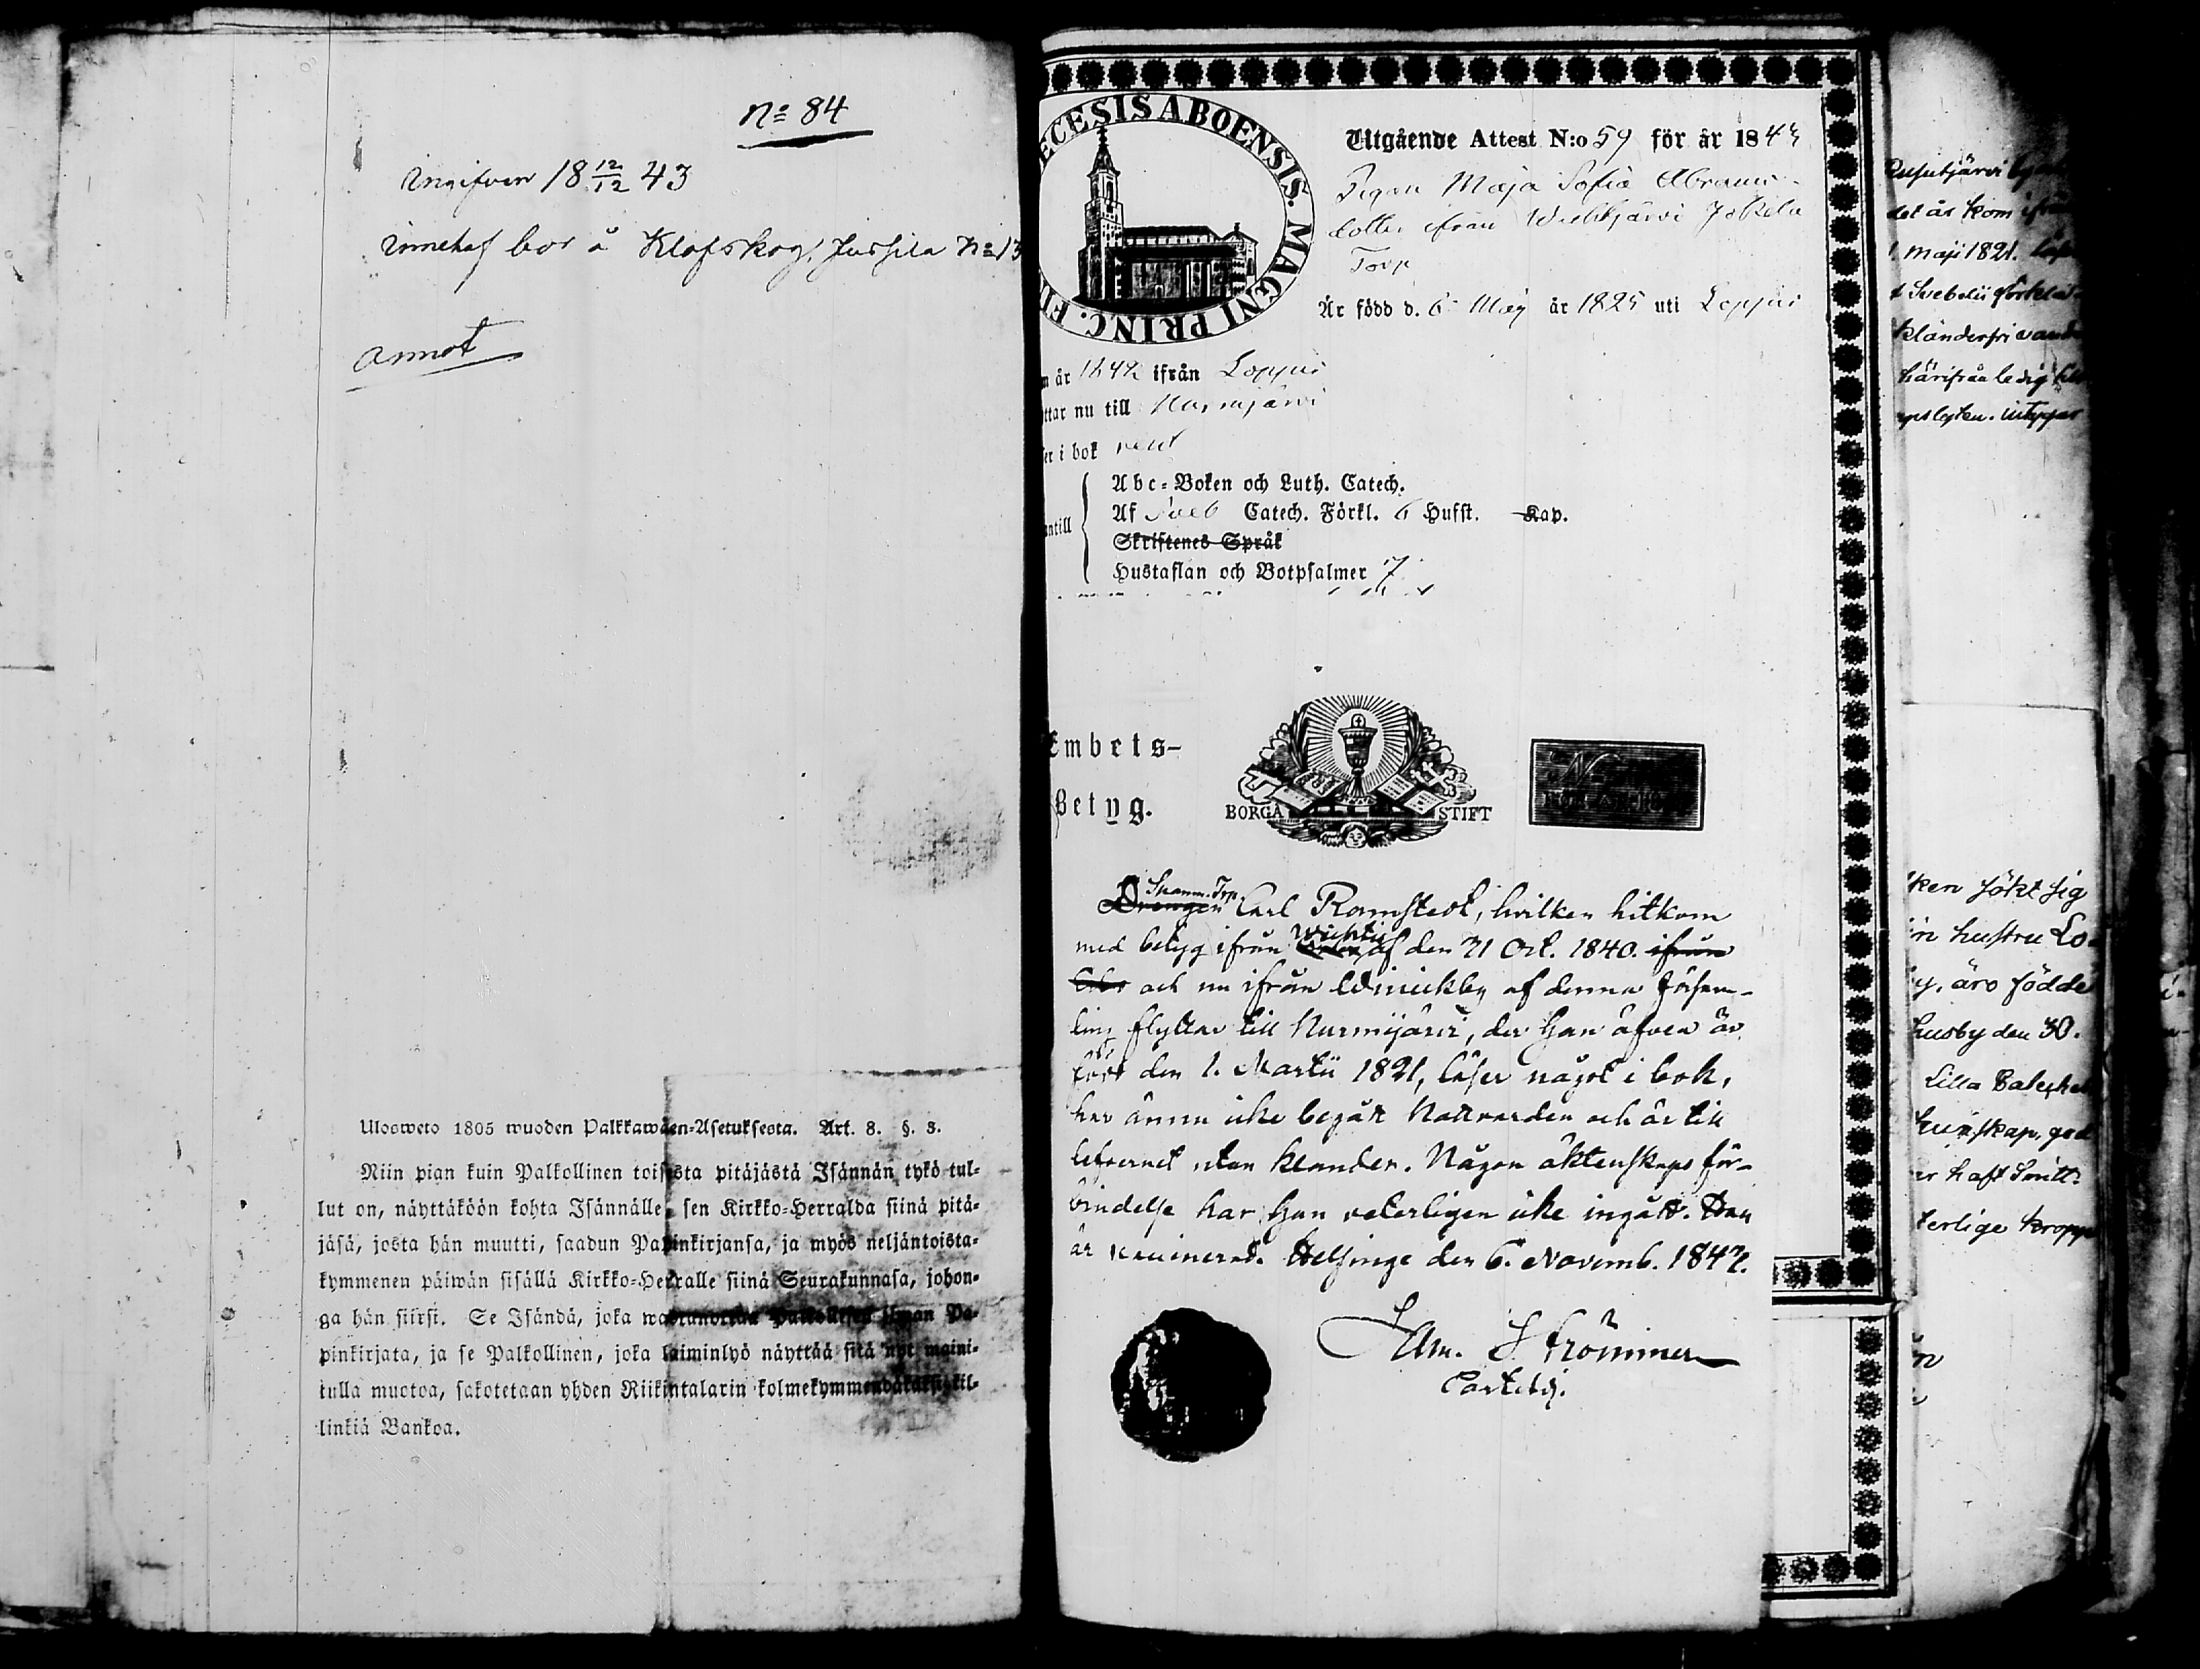 No 84
Ingifven 18 12/12 43
innehaf bor å Klafskog, Jussila No 13
annot
Ulosweto 1805 wuoden Palkkawäen-Asetuksesta. Art. 8. §. 3.
Niin pian kuin Palkollinen toisesta pitäjästä Isännän tykö tul-
lut on, näyttäköön kohta Isännälle sen Kirkko-Herralda siinä pitä-
jäsä, josta hän muutti, saadun Papinkirjansa, ja myös neljäntoista-
kymmenen päiwän sisällä Kirkko-Herralle siinä Seurakunnasa, johon-
ga hän siirsi. Se Isändä, joka Palkollisen ilman Pa-
pinkirjata, ja se Palkollinen, joka laiminlyö näyttää sitä nyt maini-
tulla muotoa, sakotetaan yhden Riikintalarin kolmekymmendäkaksi kil-
linkiä Bankoa.
ECESIS ABOENSIS. MAGNI PRINC. FI
Utgående Attest N:o 59 för år 1843
Pigan Maja Sofia Abrams-
dotter ifrån Jokela
Torp
Är född d. 6 Maij år 1825 uti Loppis
år 1842 ifrån Loppis
ttar nu till Nurmijärvi
er i bok rent
antill
Abc-Boken och Luth. Catech.
Af Sveb Catech. Förkl. 6 Hufst. Kap.
Skriftenes Språk
Hustaflan och Botpsalmer 7
Embets-
Betyg.
BORGÅ STIFT
Drengen Carl Ramstedt, hvilken hitkom
med betyg ifrån Wichtis af den 31 Oct. 1840. ifrån
och nu ifrån Winickby af denna Försam-
ling flyttar till Nurmijärvi, der han äfven är
född den 1. Martii 1821, läser något i bok,
har ännu icke begått Nattvarden och är till
lefvernet utan klander. Någon äktenskaps för-
bindelse har han veterligen icke ingått. Han
är vaccinerad. Helsinge den 6. Novemb. 1842.
Strömmer
Rusutjärvi
det år kom ifrån
1. Maji 1821.
Svebelii
klanderfri
härifrån ledig till
lken sökt sig
in hustru Lo
y, äro födde
husby den 30.
Lilla
kunskap, god
er haft Smitt-
terlige kropps